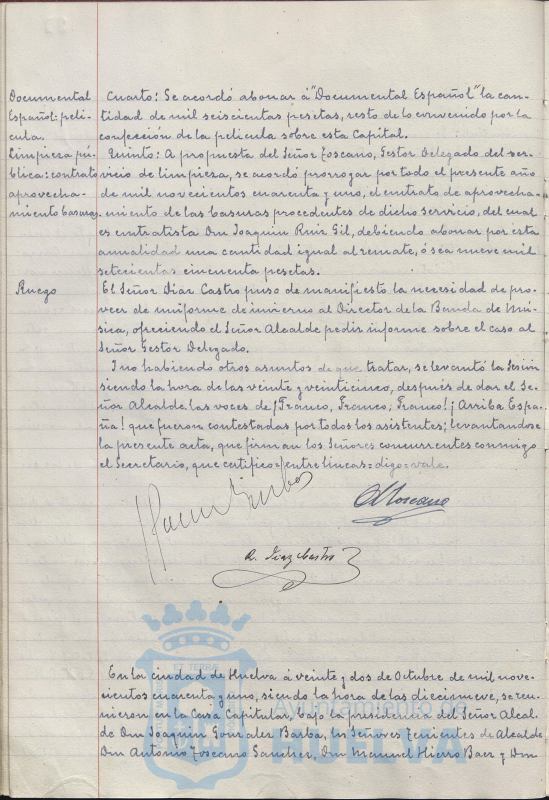 Documental
Español: pelí-
cula.
Limpieza pú-
blica: contrato
aprovecha-
miento basuras
Ruego
Cuarto: Se acordó abonar á "Documental Español" la can-
tidad de mil seiscientas pesetas, resto de lo convenido por la
confección de la película sobre esta Capital.
Quinto: A propuesta del Señor Toscano, Gestor Delegado del ser-
vicio de limpieza, se acordó prorrogar por todo el presente año
de mil novecientos cuarenta y uno, el contrato de aprovecha-
miento de las basuras procedentes de dicho servicio, del cual
es contratista Don Joaquin Ruiz Gil, debiendo abonar por esta
anualidad una cantidad igual al remate, ó sea nueve mil
setecientas cincuenta pesetas.
El Señor Diaz Castro puso de manifiesto la necesidad de pro-
veer de uniforme de invierno al Director de la Banda de Mú-
sica, ofreciendo el Señor Alcalde pedir informe sobre el caso al
Señor Gestor Delegado.
Y no habiendo otros asuntos de que tratar, se levantó la Sesión
siendo la hora de las veinte y veinticinco, después de dar el Se-
ñor Alcalde las voces de ¡Franco, Franco, Franco! ¡Arriba Espa-
ña! que fueron contestadas por todos los asistentes; levantandose
la presente acta, que firman los Señores concurrentes conmigo
el Secretario, que certifico=entre lineas=digo=vale.
A. Toscano
A. Diaz Castro
En la ciudad de Huelva á veinte y dos de Octubre de mil nove-
cientos cuarenta y uno, siendo la hora de las diecinueve, se reu-
nieron en la Casa Capitular, bajo la presidencia del Señor Alcal-
de Don Joaquin Gonzalez Barba, los Señores Tenientes de Alcalde
Don Antonio Toscano Sanchez, Don Manuel Hierro Baez y Don
Ayuntamiento de
HUELVA